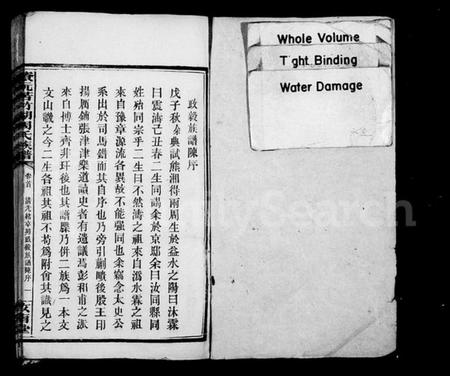 政毅族譜陳序
戊子秋叅典試熊湘得兩周生於益水之陽曰沐霖
曰雲濤己丑春二生同謁余於京邸余曰汝同縣同
姓殆同宗乎二生曰不然濤之祖來自溈水霖之祖
來自豫章源流各異故不能强同也余竊念太史公
系出於司馬錯而其自序也乃旁引蒯聵後殷王印
揚厲鋪張津津樂道讀史者有遺議焉彭和甫之派
來自博士齊非玕後也其譜牒乃併二族爲一本文
文山譏之今二生各祖其祖不苟爲附會其識見之
卷首
Whole Volume
T ght Binding
Water Damage